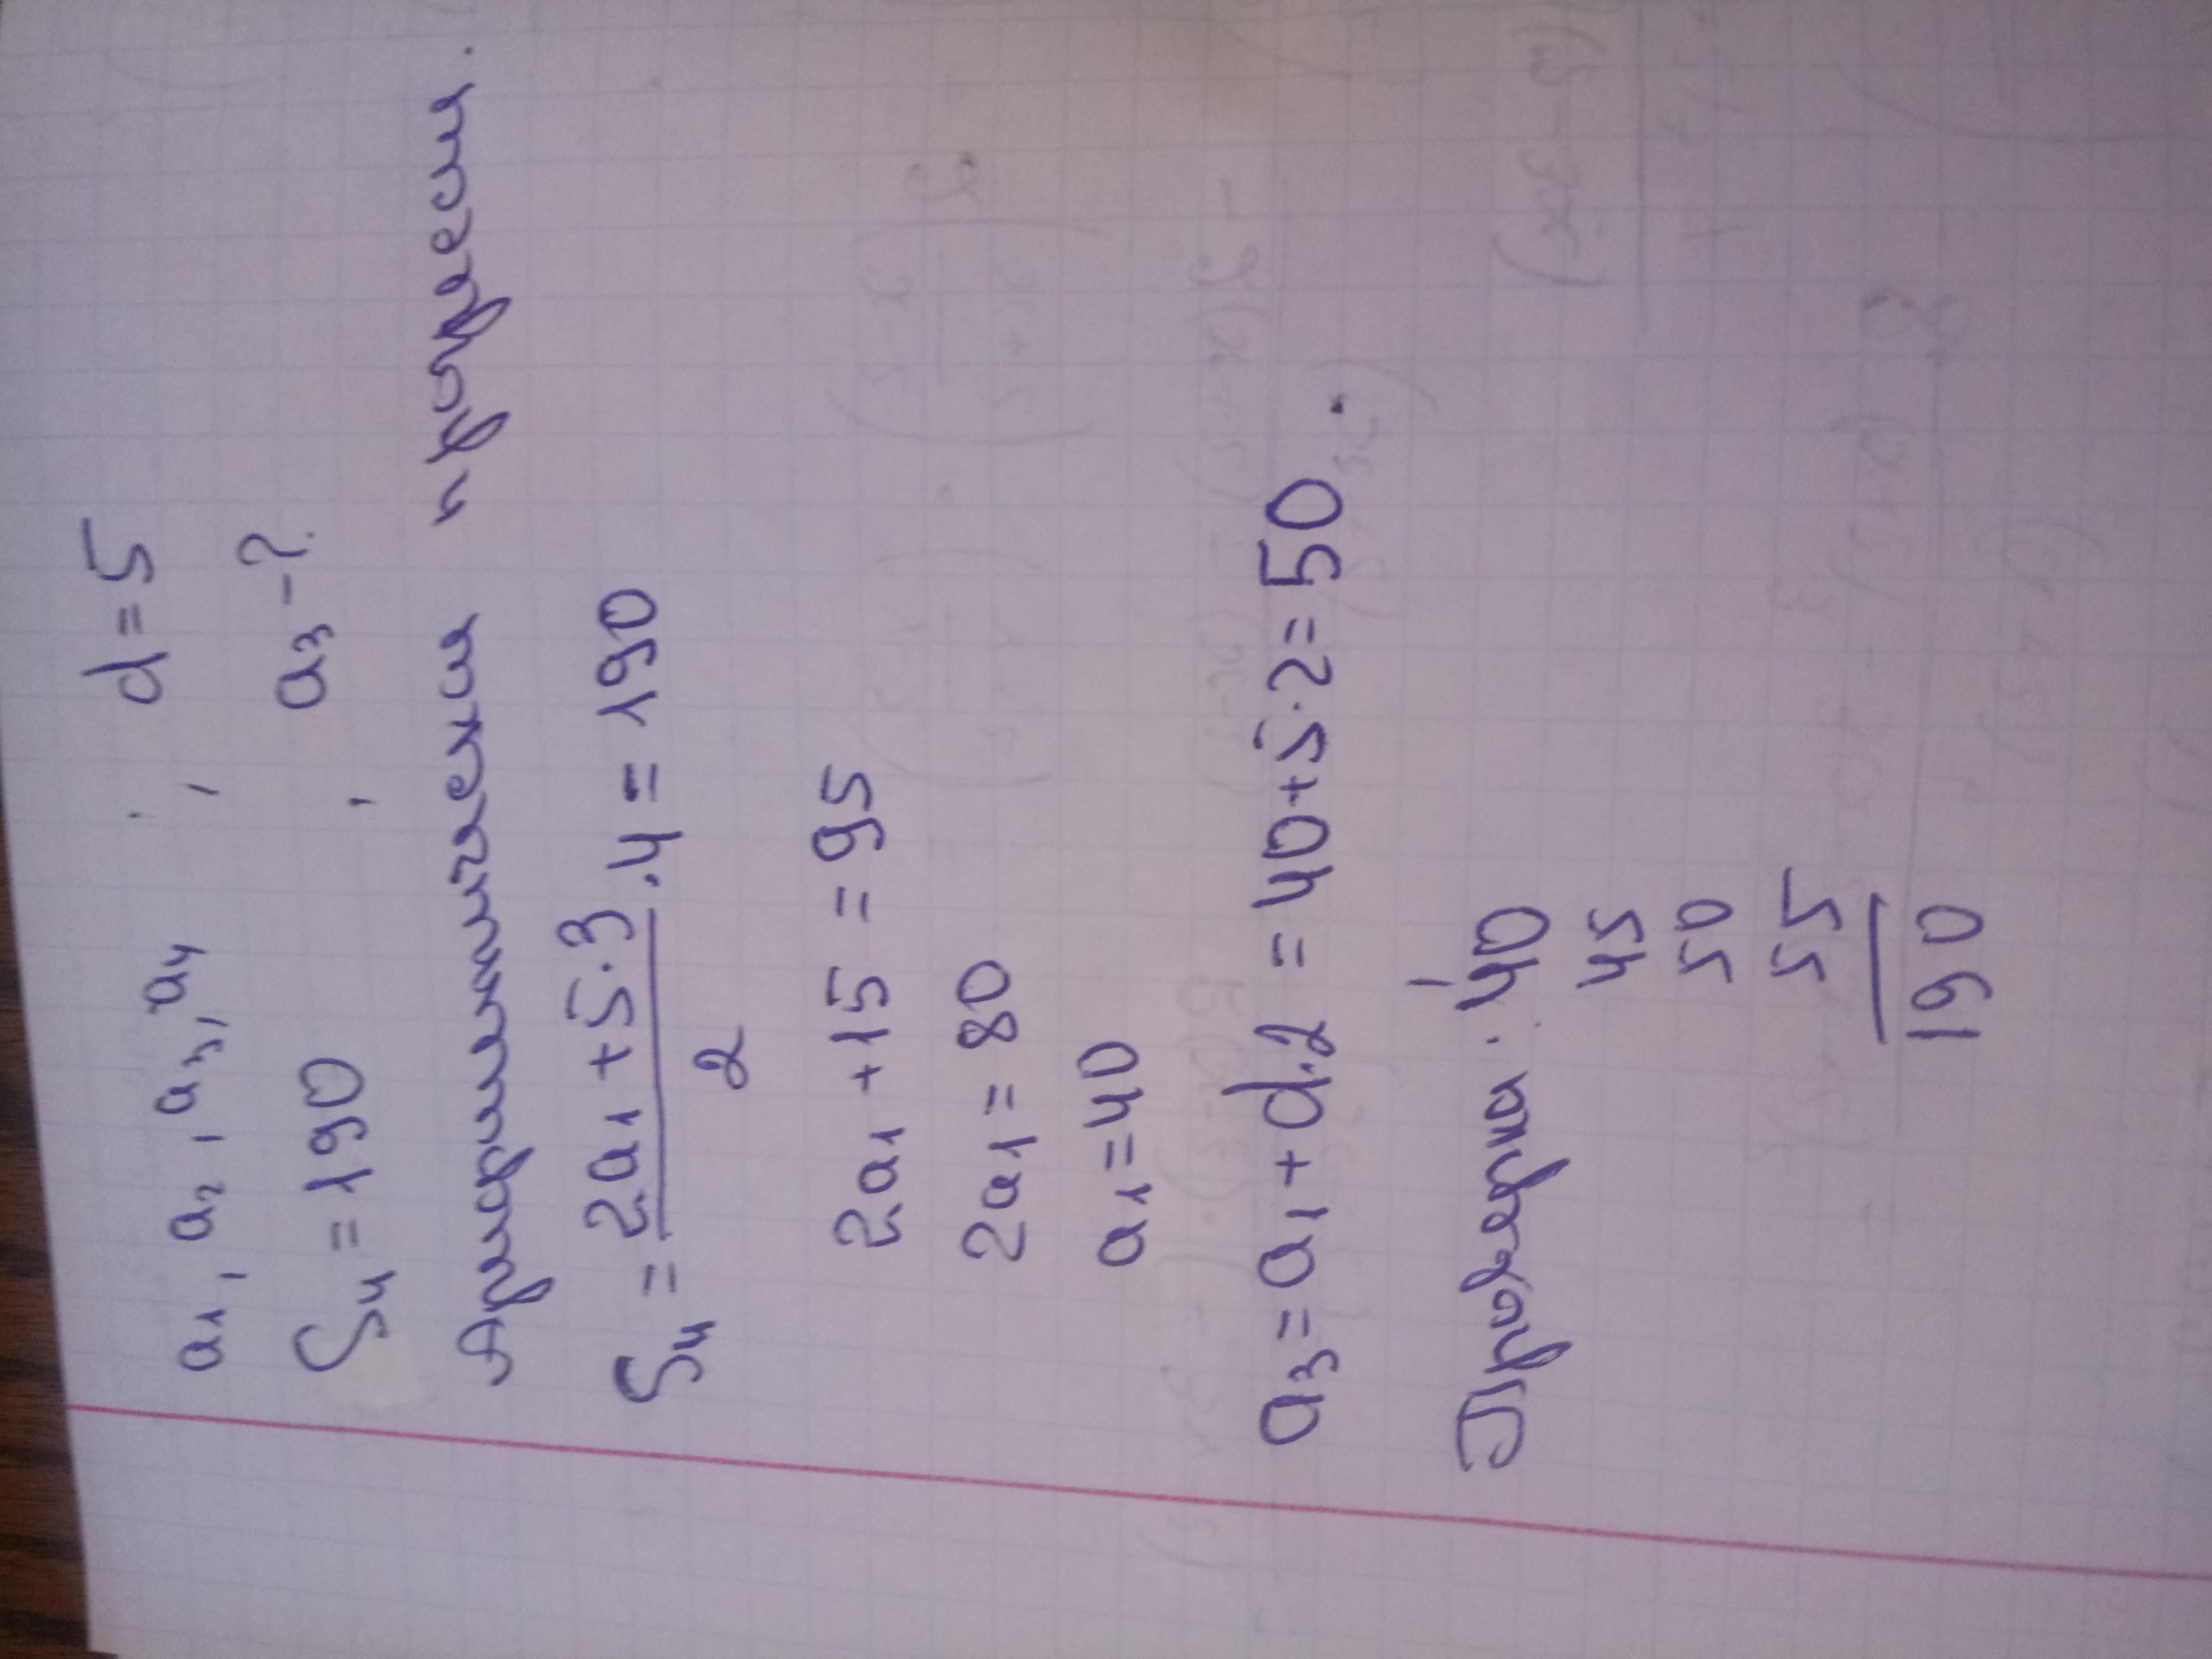 a1, a2, a3, a4 d=5
S4 = 190 a3 - ?
Арифметическая прогрессия.
S4 = (2a1 + 5·3)/2 · 4 = 190
2a1 + 15 = 95
2a1 = 80
a1 = 40
a3 = a1 + d·2 = 40+5·2 = 50.
40
45
50
55
190